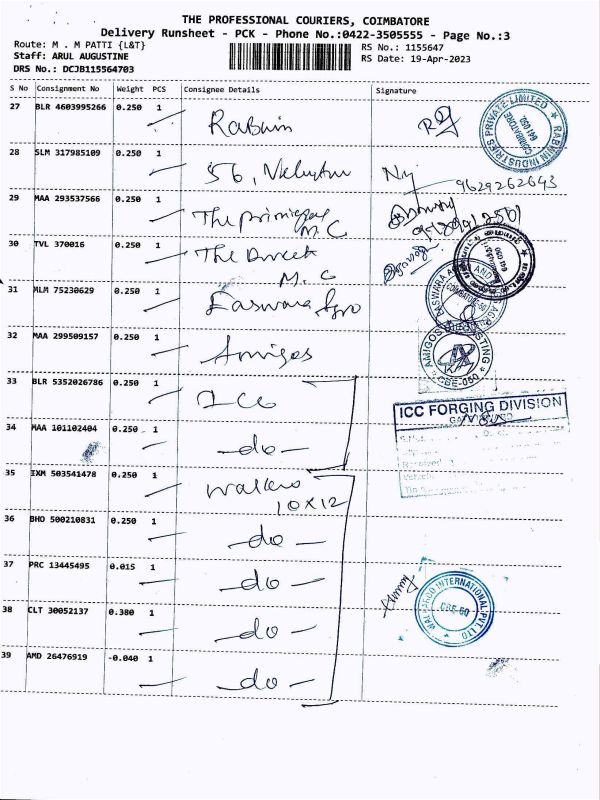 THE PROFESSIONAL COURIERS, COIMBATORE
Delivery Runsheet - PCK - Phone No.:0422-3505555 - Page No.:3
Route: M . M PATTI {L&T} RS No.: 1155647
Staff: ARUL AUGUSTINE RS Date: 19-Apr-2023
DRS No.: DCJB115564703
S No Consignment No Weight PCS Consignee Details Signature
27 BLR 4603995266 0.250 1
Rabwin
RABWIN INDUSTRIES PRIVATE LIMITED COIMBATORE 641 050.
28 SLM 317985109 0.250 1
56,
9629262643
29 MAA 293537566 0.250 1
The
M. C
30 TVL 370016 0.250 1
The
M. C
31 MLM 75230629 0.250 1
Easwara Agro
COIMBATORE-50
32 MAA 299509157 0.250 1
Amigos
AMIGOS CBE-050
33 BLR 5352026786 0.250 1
ICC
ICC FORGING DIVISION
34 MAA 101102404 0.250 1
-do-
35 IXM 503541478 0.250 1
10x12
36 BHO 500210831 0.250 1
-do-
37 PRC 13445495 0.015 1
-do-
38 CLT 30052137 0.380 1
-do-
INTERNATIONAL PVT. LTD
39 AMD 26476919 -0.040 1
-do-